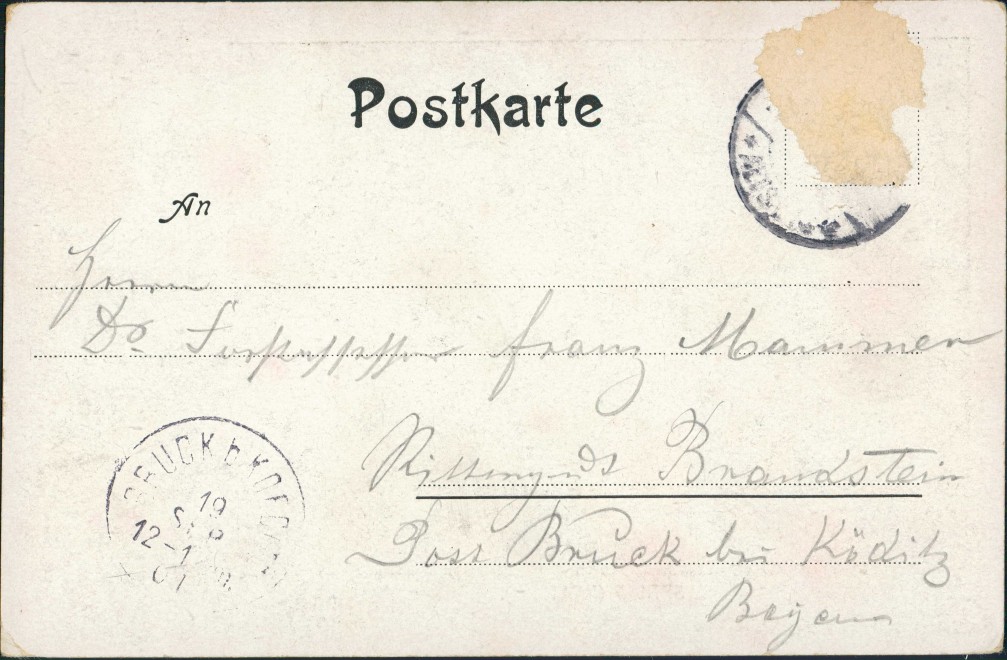 Postkarte
An
Herrn
Dr. Franz Mammen
Rittergut Brandstein
Post Bruck bei Köditz
Bayern
BRUCK b. HOF
19
SEP
12-1
01